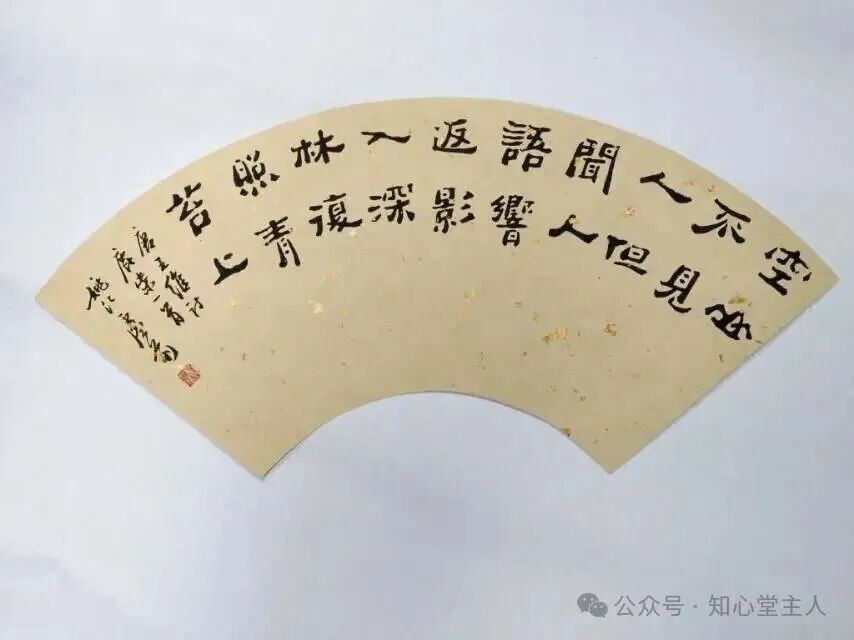 空山
不見
人但
聞人
語響
返影
入深
林復
照青
苔上
唐王維詩
鹿柴一首
姚江
公众号·知心堂主人